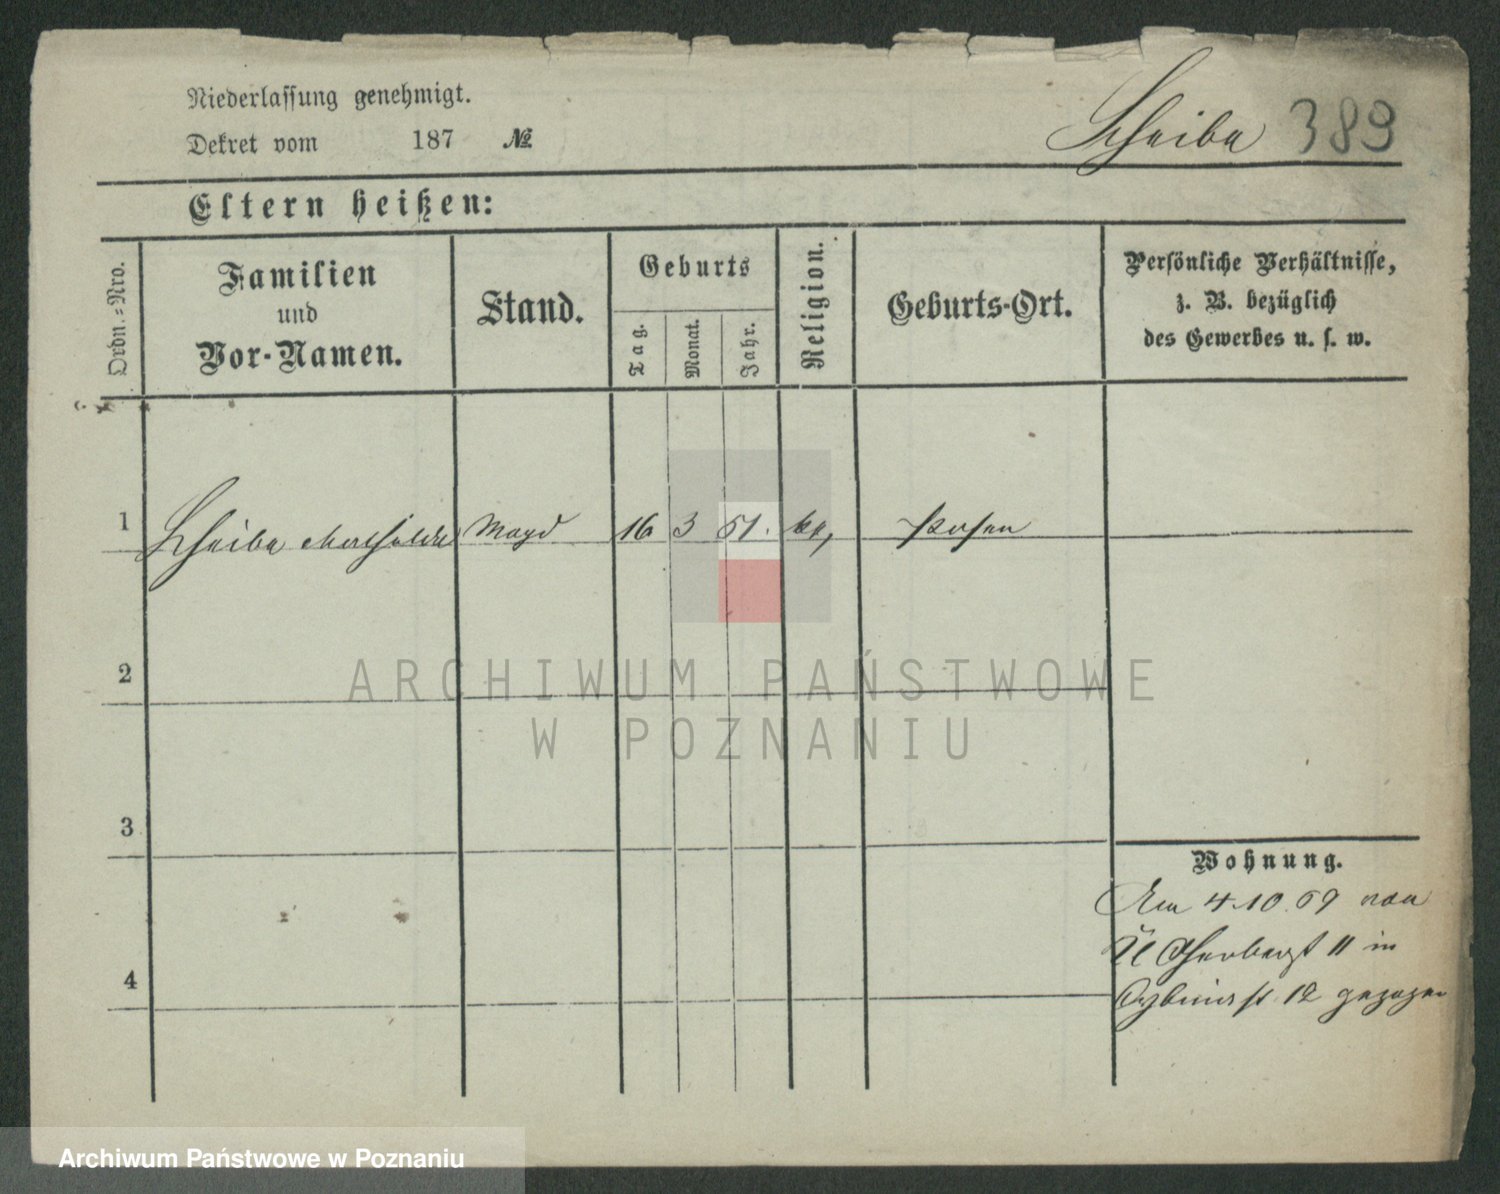 Niederlassung genehmigt.
Dekret vom 187 №
Scheibe 389
Eltern heißen:
Ordn.=Nro.
Familien
und
Vor-Namen.
Stand.
Geburts
Tag.
Monat.
Jahr.
Religion.
Geburts-Ort.
Persönliche Verhältnisse,
z. B. bezüglich
des Gewerbes u. s. w.
1 Scheibe Mathilde Magd 16 3 51. kt, Posen
2
3
4
Wohnung.
Am 4.10.69 von
11 in
12 gezogen
ARCHIWUM PAŃSTWOWE
W POZNANIU
Archiwum Państwowe w Poznaniu